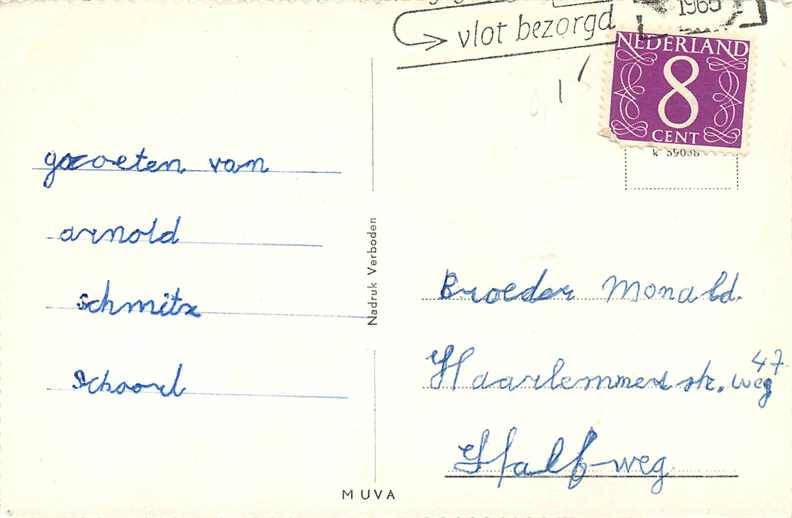 vlot bezorgd
1965
NEDERLAND
8
CENT
groeten van
arnold
schmitz
Schoorl
Nadruk Verboden
Broeder Monald.
47
Haarlemmerstr. weg
Halfweg
MUVA